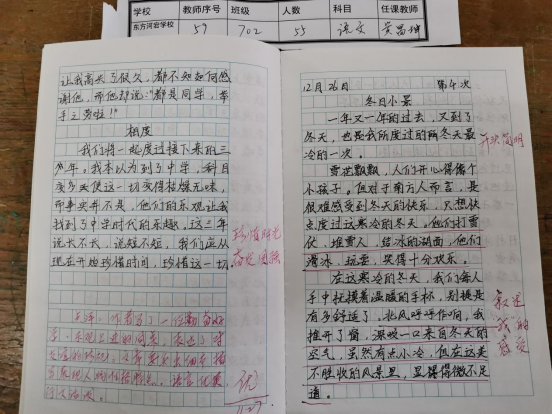 学校 教师序号 班级 人数 科目 任课教师
东方河宏学校 59 702 55 语文
让我高兴了很久，都不知如何感
谢他，而他却说："都是同学，举
手之劳啦！"
相度
我们将一起度过接下来的三
少年。我本以为到了中学，科目
变多会使这一切变得枯燥无味，
而事实并不是，他们的乐观让我
找到了中学时代的乐趣，这三年
说长不长，说短不短，我们应从
现在开始珍惜时间，珍惜这一切。
珍惜时光
奋发图强
优
11.27
12月26日 第4次
冬日小景
一年又一年的过去，又到了
冬天，也是我所度过的两冬天最
冷的一次。
雪花飘飘，人们开心得像个
小孩子。但对于南方人而言，是
很难感受到冬天的快乐，只想快
点度过这寒冷的冬天。他们打雪
仗，堆雪人，结冰的湖面，他们
滑冰，玩耍，笑得十分欢乐。
在这寒冷的冬天，我们每人
手中抚摸着温暖的手杯，别提是
有多舒适了，北风呼呼作响，我
推开了窗，深吸一口来自冬天的
空气，虽然有点小冷，但在这美
不胜收的风景里，显得得微不足
道。
开头简明
叙述
我的
感受